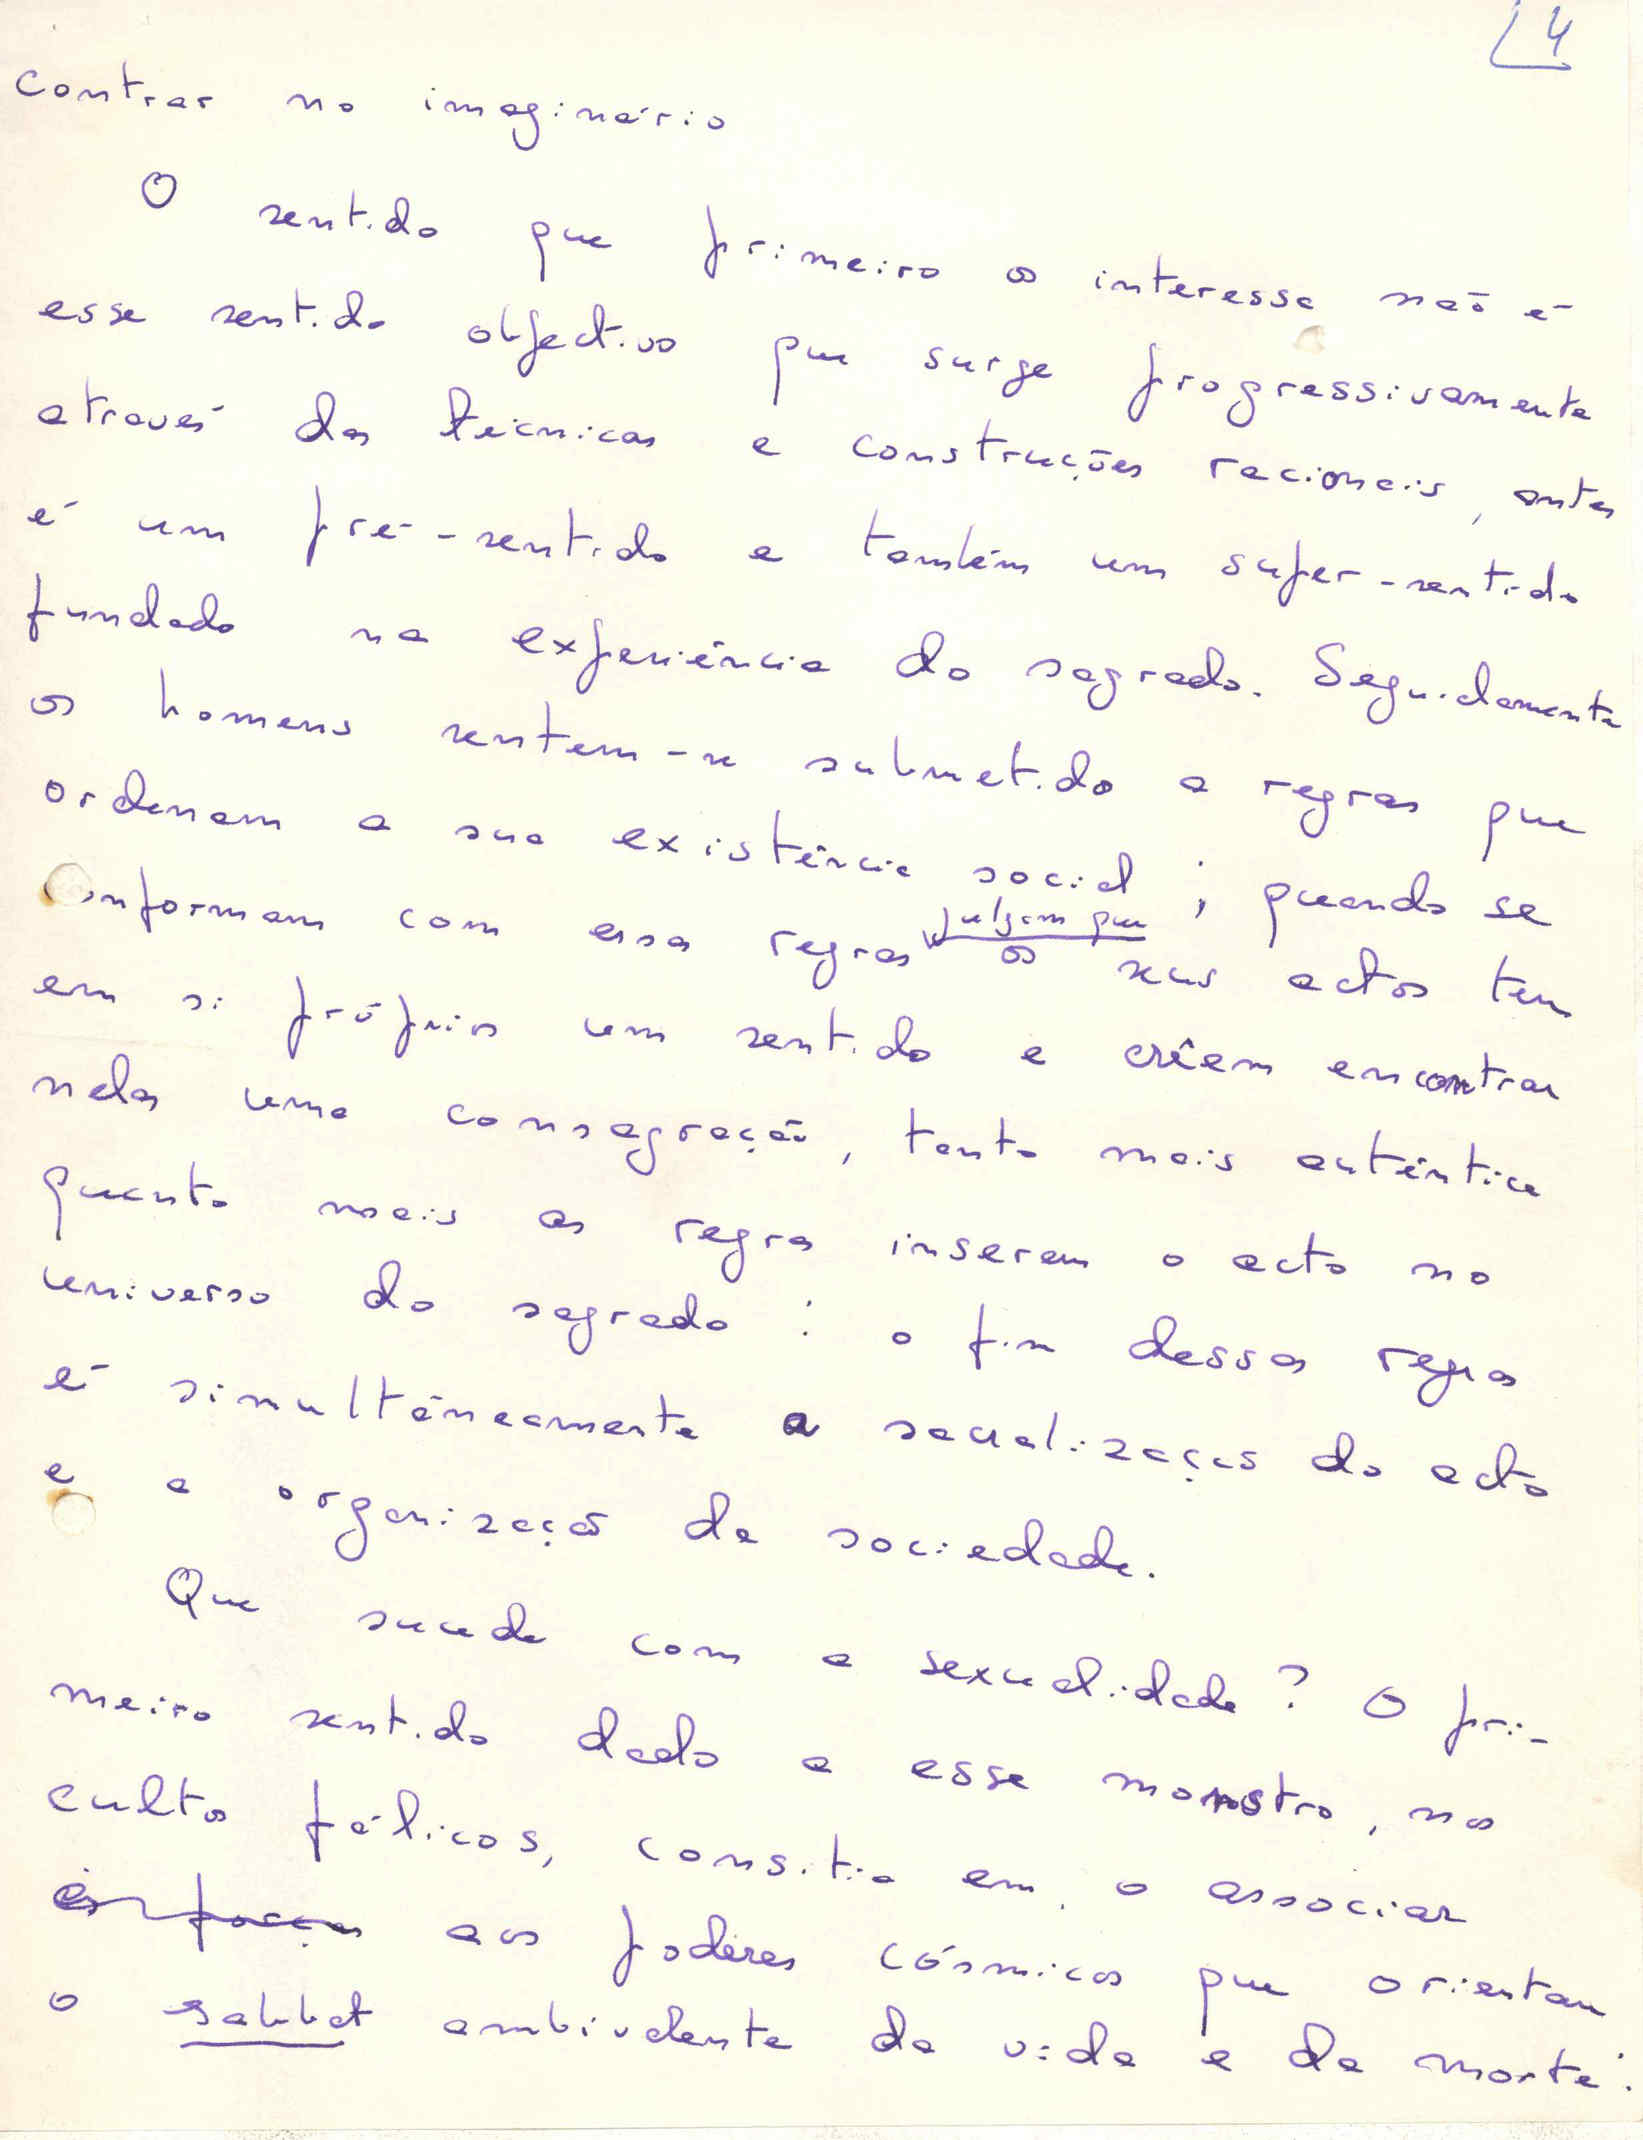 4
contrar no imaginário
O sentido que primeiro os interessa não é
esse sentido objectivo que surge progressivamente
através das técnicas e construções racionais, antes
é um pré-sentido e também um super-sentido
fundado na experiência do sagrado. Seguidamente
os homens sentem-se submetidos a regras que
ordenam a sua existência social; quando se
conformam com essas regras julgam que os seus actos têm
em si próprios um sentido e crêem encontrar
nelas uma consagração, tanto mais autêntica
quanto mais as regras inserem o acto no
universo do sagrado: o fim dessas regras
é simultâneamente a socialização do acto
e a organização da sociedade.
Que sucede com a sexualidade? O pri-
meiro sentido dado a esse monstro, nos
cultos fálicos, consistia em o associar
às forças aos poderes cósmicos que orientam
o sabbat ambivalente da vida e da morte: